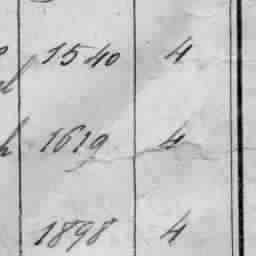 1540 4
1619 4
1898 4